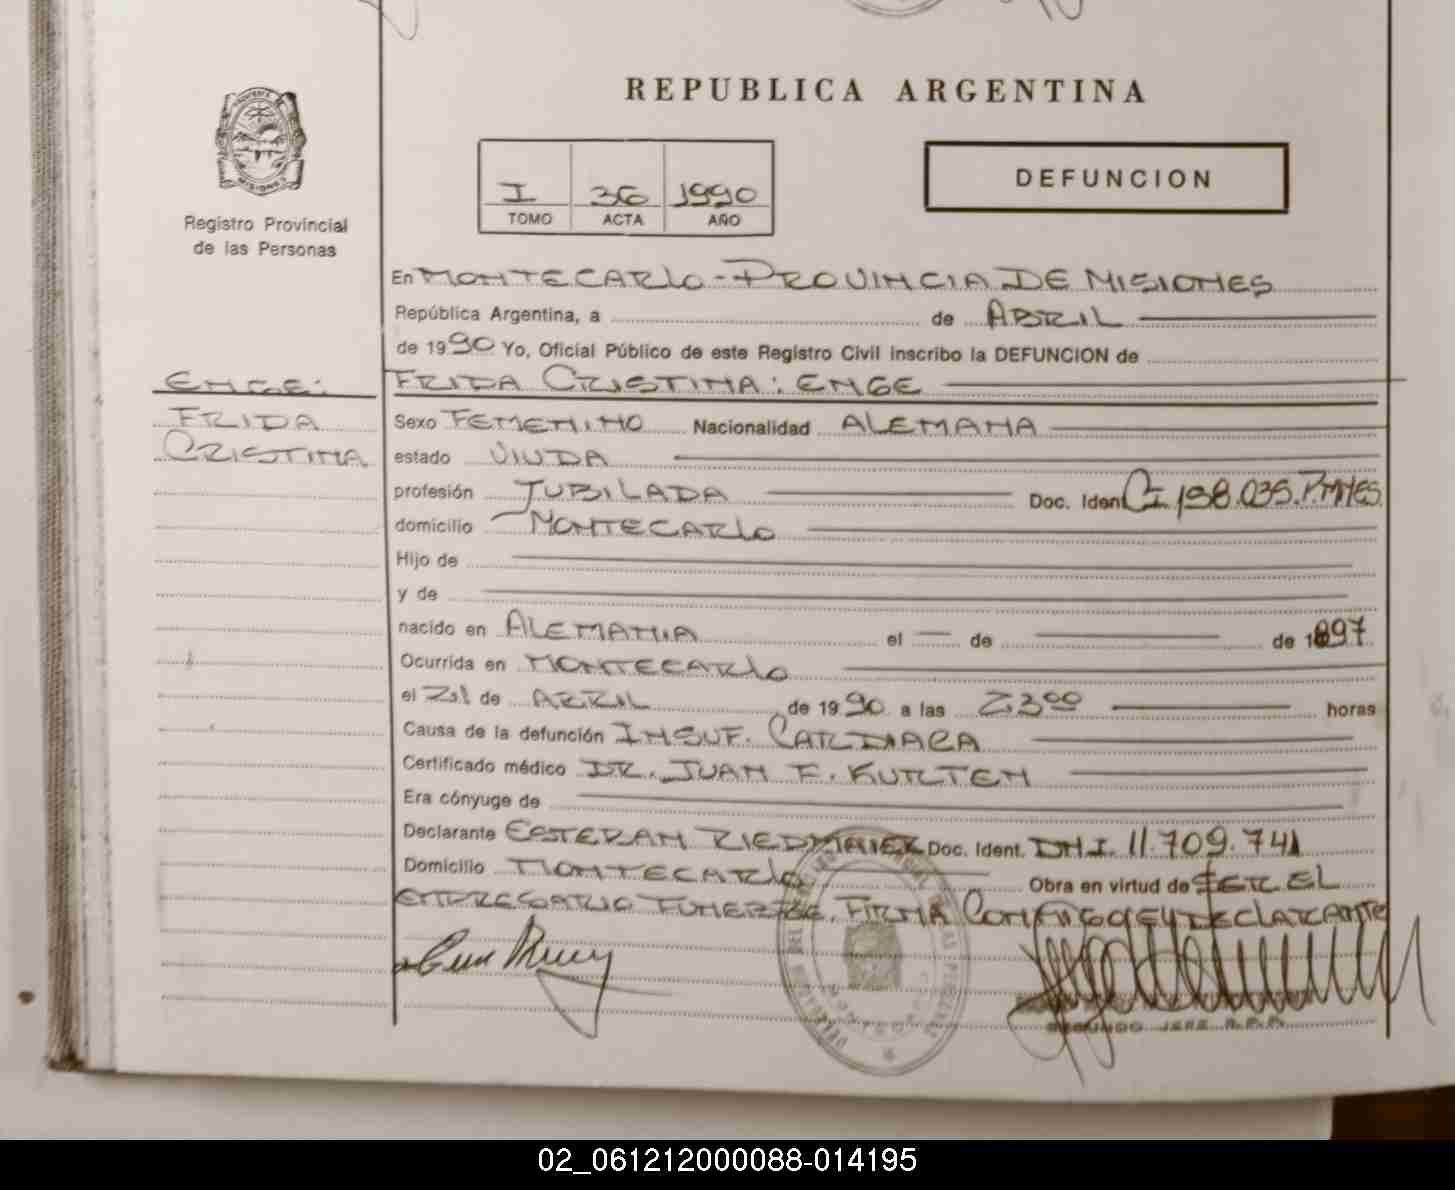 REPUBLICA ARGENTINA
MISIONES
Registro Provincial
de las Personas
I 36 1990
TOMO ACTA AÑO
DEFUNCION
En MONTECARLO - PROVINCIA DE MISIONES
República Argentina, a de ABRIL
de 1990 Yo, Oficial Público de este Registro Civil inscribo la DEFUNCION de
ENGE: FRIDA CRISTINA: ENGE
FRIDA Sexo FEMENINO Nacionalidad ALEMANA
CRISTINA estado VIUDA
profesión JUBILADA Doc. Ident CI 198.035.PMNES.
domicilio MONTECARLO
Hijo de
y de
nacido en ALEMANIA el — de de 1897
Ocurrida en MONTECARLO
el 21 de ABRIL de 1990 a las 23⁰⁰ horas
Causa de la defunción INSUF. CARDIACA
Certificado médico DR. JUAN F. KURTEN
Era cónyuge de
Declarante ESTEBAN RIEDMAIER Doc. Ident. DNI. 11.709.741
Domicilio MONTECARLO Obra en virtud de SER EL
EMPRESARIO FUNEBRE. FIRMA CONMIGO EL DECLARANTE
SEGUNDO JEFE R.P.P.
02_061212000088-014195